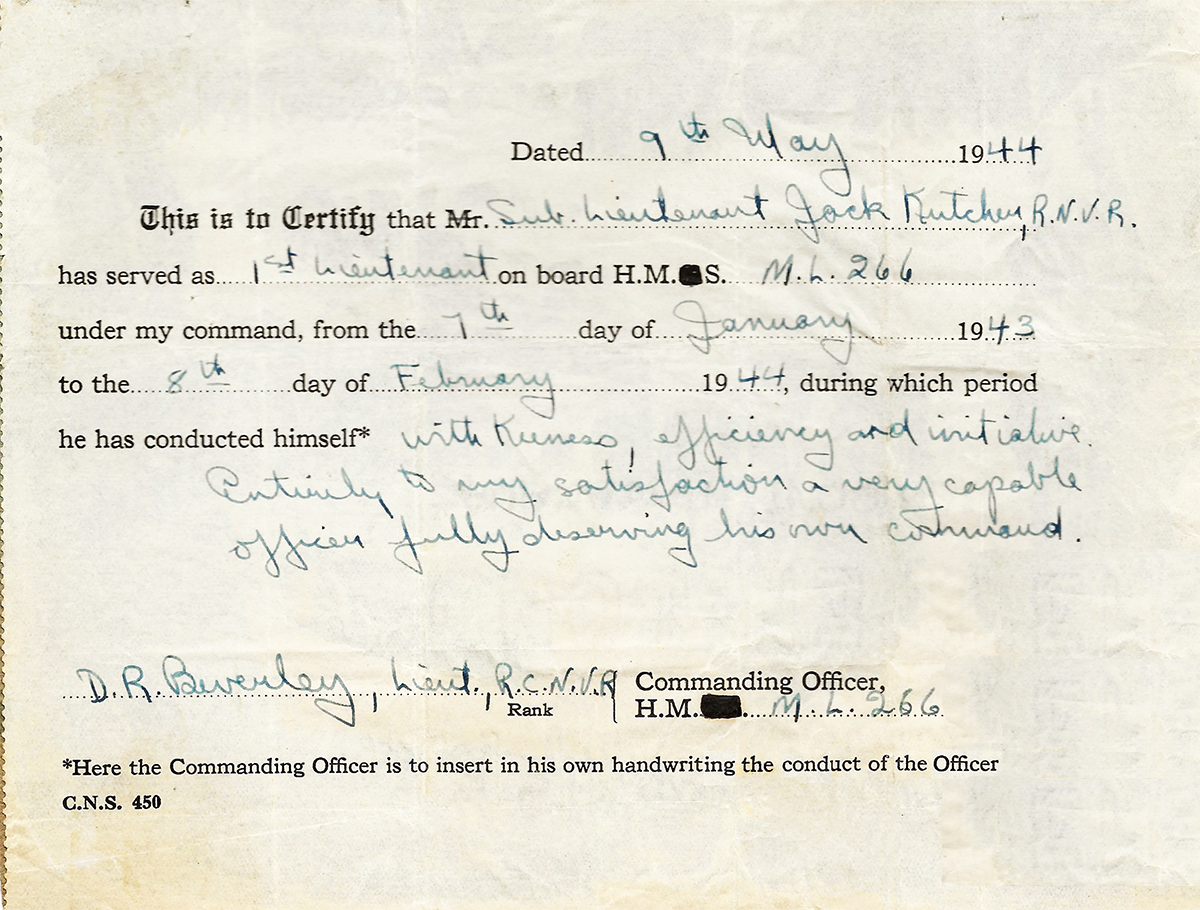 Dated 9th May 1944
This is to Certify that Mr. Sub. Lieutenant Jack Kutcher, R.N.V.R.
has served as 1st Lieutenant on board H.M. S. M.L. 266
under my command, from the 7th day of January 1943
to the 8th day of February 1944, during which period
he has conducted himself* with Keeness, efficiency and initiative.
Entirely to my satisfaction a very capable
officer fully deserving his own command.
D.R. Beverley, Lieut., R.C.N.V.R Commanding Officer,
Rank H.M. M.L. 266
*Here the Commanding Officer is to insert in his own handwriting the conduct of the Officer
C.N.S. 450